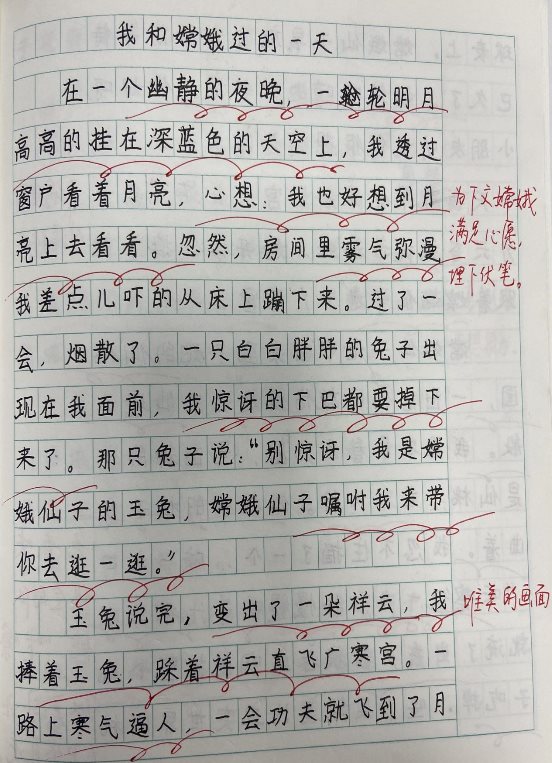 我和嫦娥过的一天
在一个幽静的夜晚，一轮明月
高高的挂在深蓝色的天空上，我透过
窗户看着月亮，心想：我也好想到月
亮上去看看。忽然，房间里雾气弥漫
我差点儿吓的从床上蹦下来。过了一
会，烟散了。一只白白胖胖的兔子出
现在我面前，我惊讶的下巴都要掉下
来了。那只兔子说：“别惊讶，我是嫦
娥仙子的玉兔，嫦娥仙子嘱咐我来带
你去逛一逛。”
玉兔说完，变出了一朵祥云，我
捧着玉兔，踩着祥云直飞广寒宫。一
路上寒气逼人，一会功夫就飞到了月
为下文嫦娥
满足心愿，
埋下伏笔。
唯美的画面